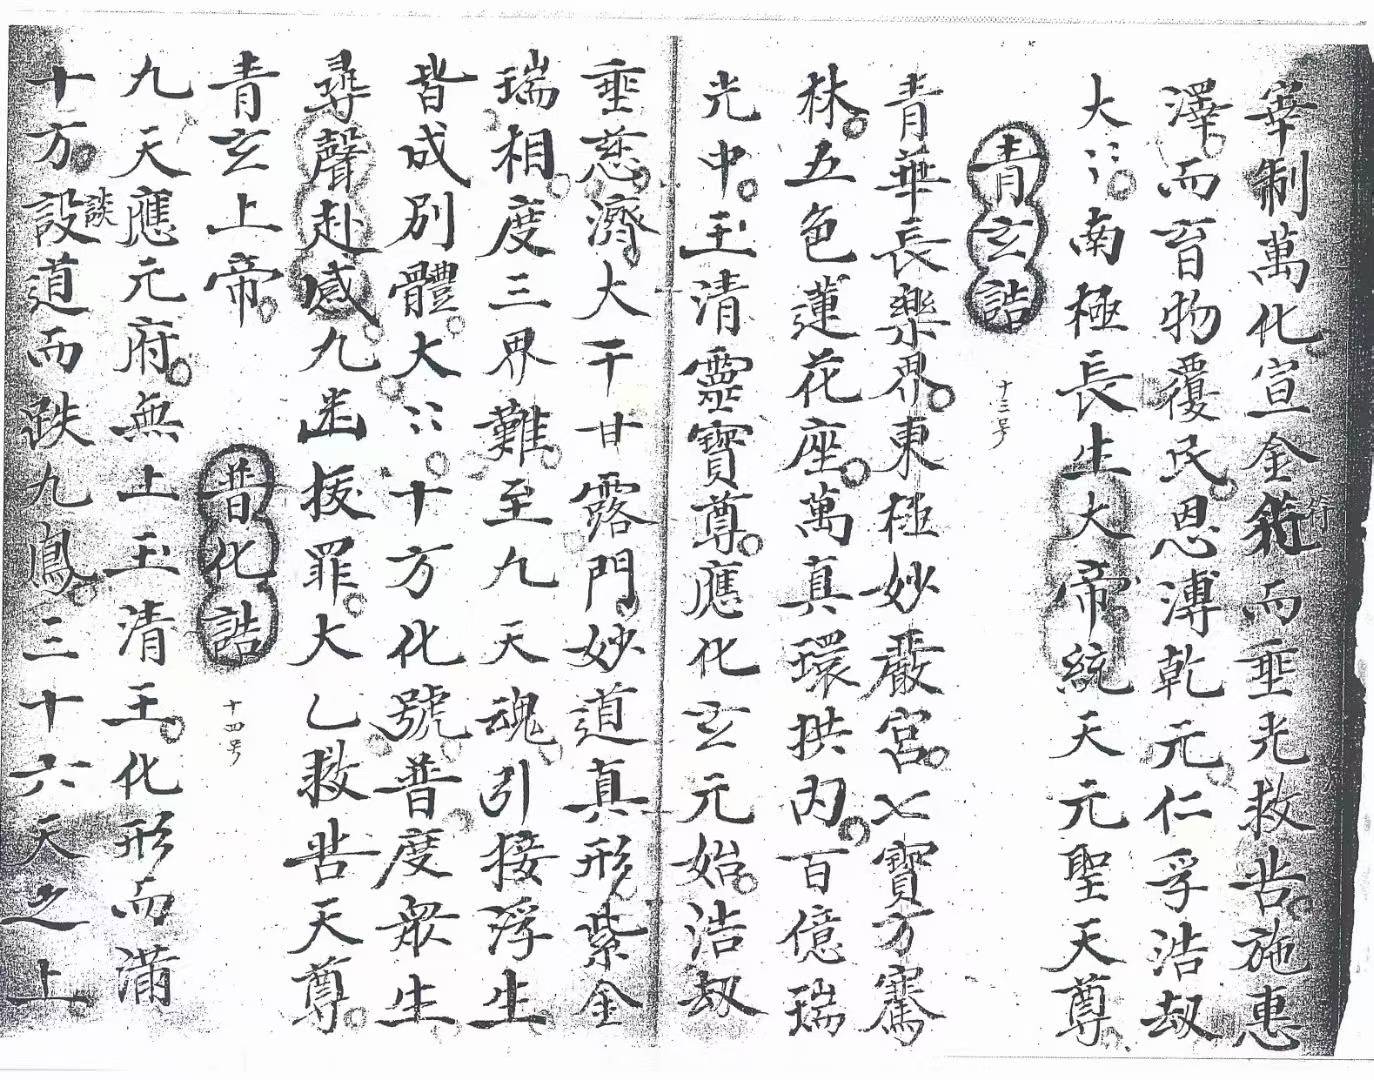 宰制萬化宣金符而垂光救苦施惠
符
澤而育物覆民恩溥乾元仁孚浩劫
大〻南極長生大帝統天元聖天尊
青玄誥
十三号
青華長樂界東極妙嚴宮七寶方騫
林五色蓮花座萬真環拱内百億瑞
光中玉清靈寶尊應化玄元始浩劫
垂慈濟大千甘露門妙道真形紫金
瑞相度三界難至九天魂引接浮生
皆成別體大〻十方化號普度眾生
尋聲赴感九幽拔罪大乙救苦天尊
青玄上帝
普化誥
十四号
九天應元府無上玉清王化形而滿
十方設道而趺九鳳三十六天之上
談